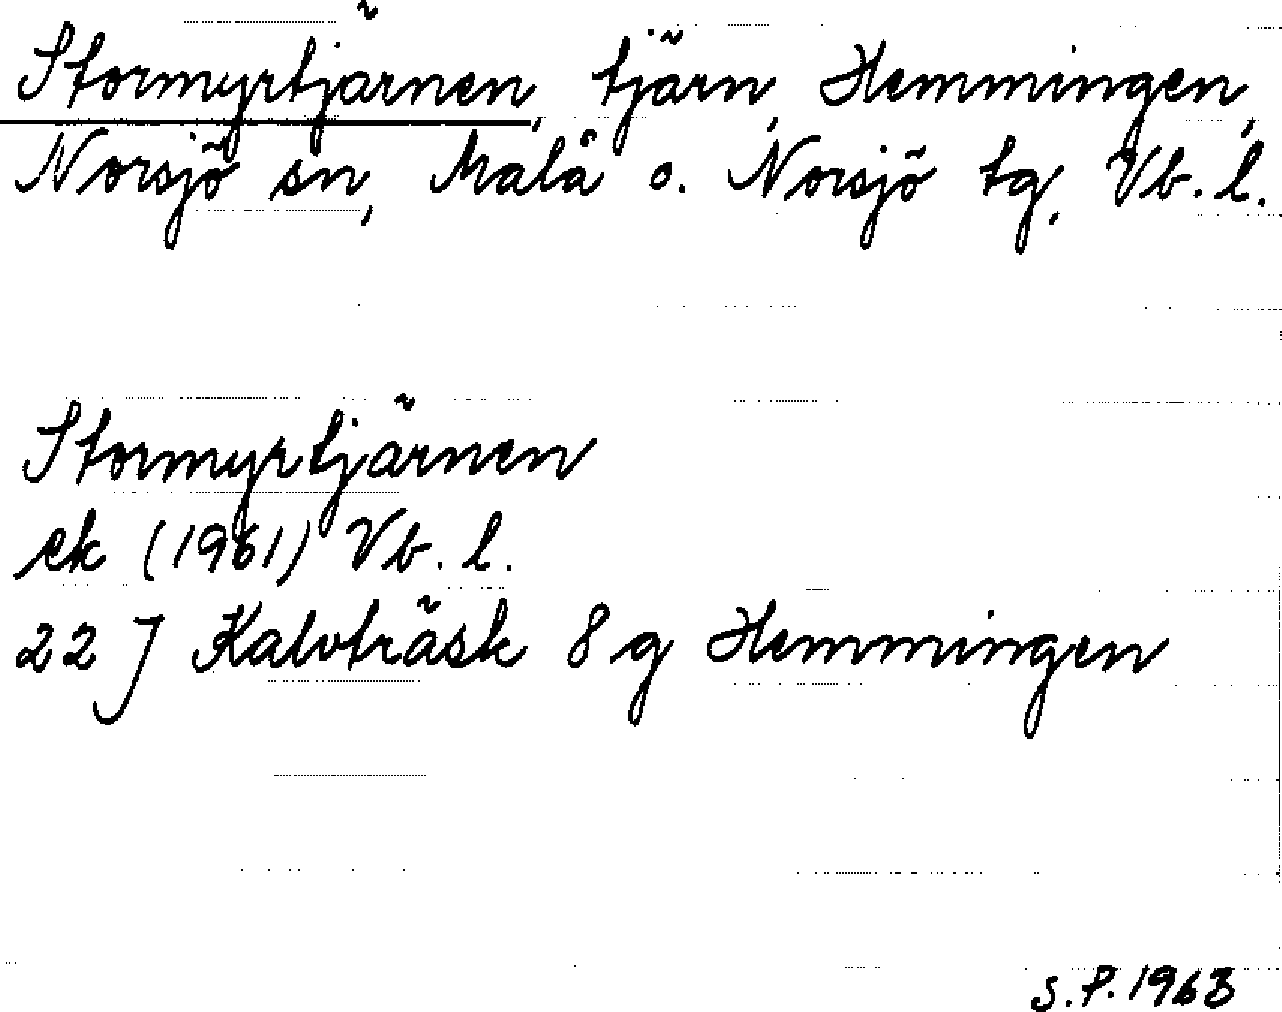 Stormyrtjärnen, tjärn, Hemmingen,
Norsjö sn, Malå o. Norsjö tg, Vb. l.
Stormyrtjärnen
ek (1961) Vb. l.
22 J Kalvträsk 8 g Hemmingen
S.P. 1963